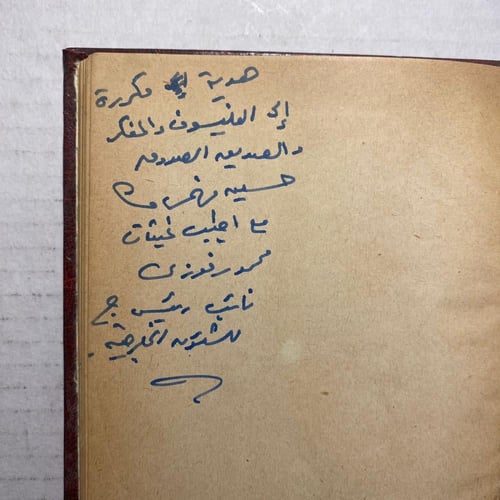 هدية مكررة
إلى الفيلسوف والمفكر
والصديق الصدوق
حسين
مع أطيب تحيات
محمود فوزى
نائب رئيس ج
للشئون الخارجية